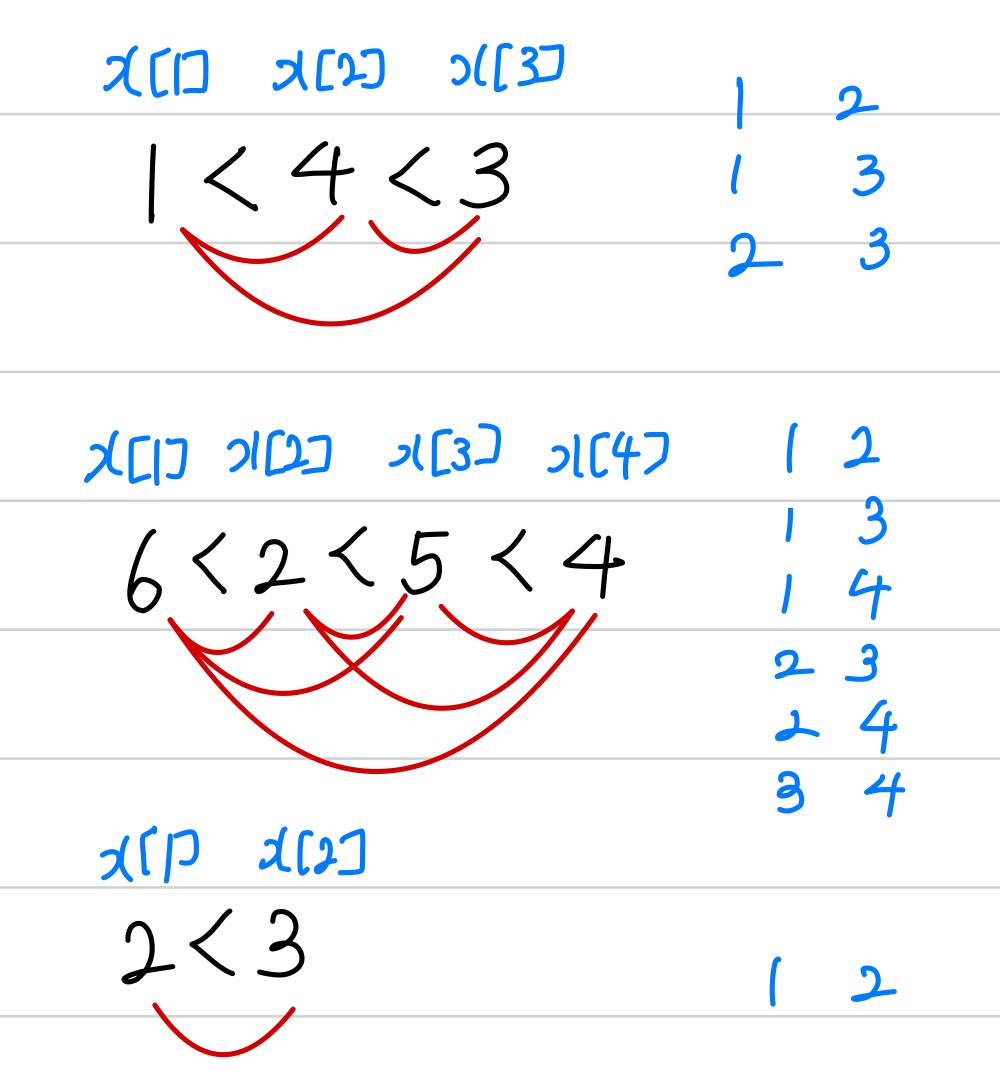 x[1] x[2] x[3]
1 2
1 < 4 < 3
1 3
2 3
x[1] x[2] x[3] x[4]
1 2
6 < 2 < 5 < 4
1 3
1 4
2 3
2 4
3 4
x[1] x[2]
2 < 3
1 2